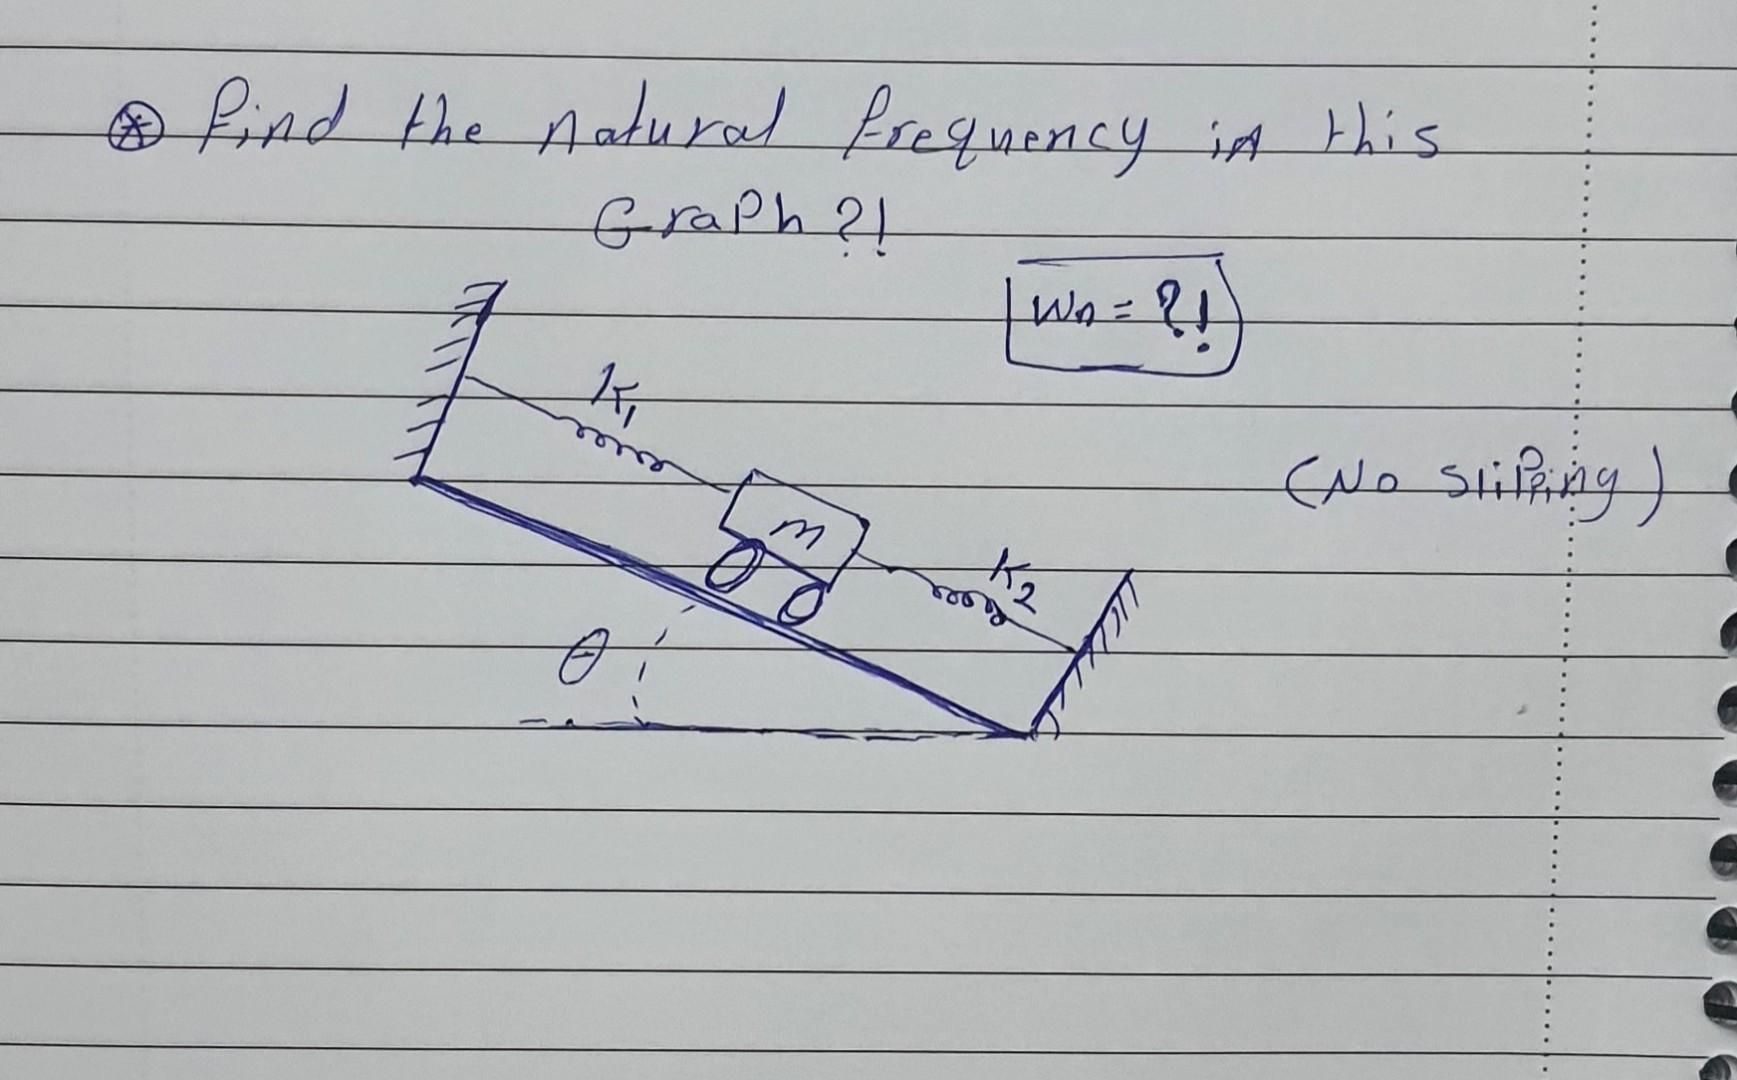 ⊛ find the natural frequency in this
Graph ?!
Wn = ?!
K1
(No slipping)
m
K2
θ